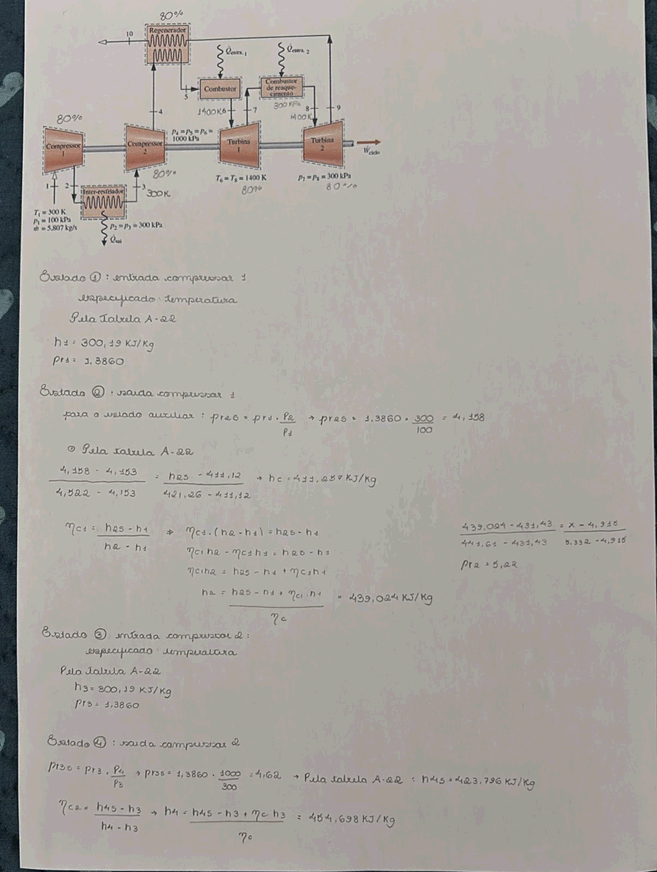 80%
Regenerador
10
Q̇comb. 1
Q̇comb. 2
Combustor
Combustor
de reaque-
cimento
300 KPa
5
1400K 6
7
8
9
1400K
4
80%
Compressor
1
Compressor
2
p4 = p5 = p6 =
1000 kPa
Turbina
1
Turbina
2
Ẇciclo
80%
T6 = T8 = 1400 K
80%
p7 = p8 = 300 kPa
80%
1
2
3
300K
Inter-resfriador
T1 = 300 K
p1 = 100 kPa
ṁ = 5,807 kg/s
p2 = p3 = 300 kPa
Q̇sai
Estado ① : entrada compressor 1
especificado: temperatura
Pela Tabela A-22
h1 = 300,19 KJ/Kg
pr1 = 1,3860
Estado ② : saída compressor 1
para o estado auxiliar : pr2s = pr1 . P2/P1 → pr2s = 1,3860 . 300/100 = 4,158
Pela tabela A-22
4,158 - 4,153 / 4,522 - 4,153 = h2s - 411,12 / 421,26 - 411,12 → hc = 411,257 KJ/Kg
ηc1 = h2s - h1 / h2 - h1 → ηc1 . (h2 - h1) = h2s - h1
439,024 - 431,43 / 441,61 - 431,43 = x - 4,915 / 5,332 - 4,915
ηc1h2 - ηc1h1 = h2s - h1
pr2 = 5,22
ηc1h2 = h2s - h1 + ηc1h1
h2 = h2s - h1 + ηc1 h1 / ηc = 439,024 KJ/Kg
Estado ③ entrada compressor 2:
especificado: temperatura
Pela Tabela A-22
h3 = 300,19 KJ/Kg
pr3 = 1,3860
Estado ④ : saída compressor 2
pr3s = pr3 . P4/P3 → pr3s = 1,3860 . 1000/300 = 4,62 → Pela tabela A-22 : h4s = 423,796 KJ/Kg
ηc2 = h4s - h3 / h4 - h3 → h4 = h4s - h3 + ηc h3 / ηc = 454,698 KJ/Kg